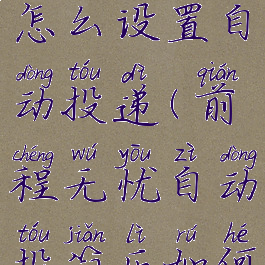 怎么设置自
dòng tóu dì qián
动投递(前
chéng wú yōu zì dòng
程无忧自动
tóu jiǎn lì rú hé
投简历如何